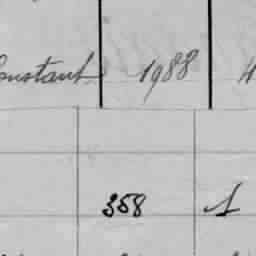 onstant 1988 4
358 1